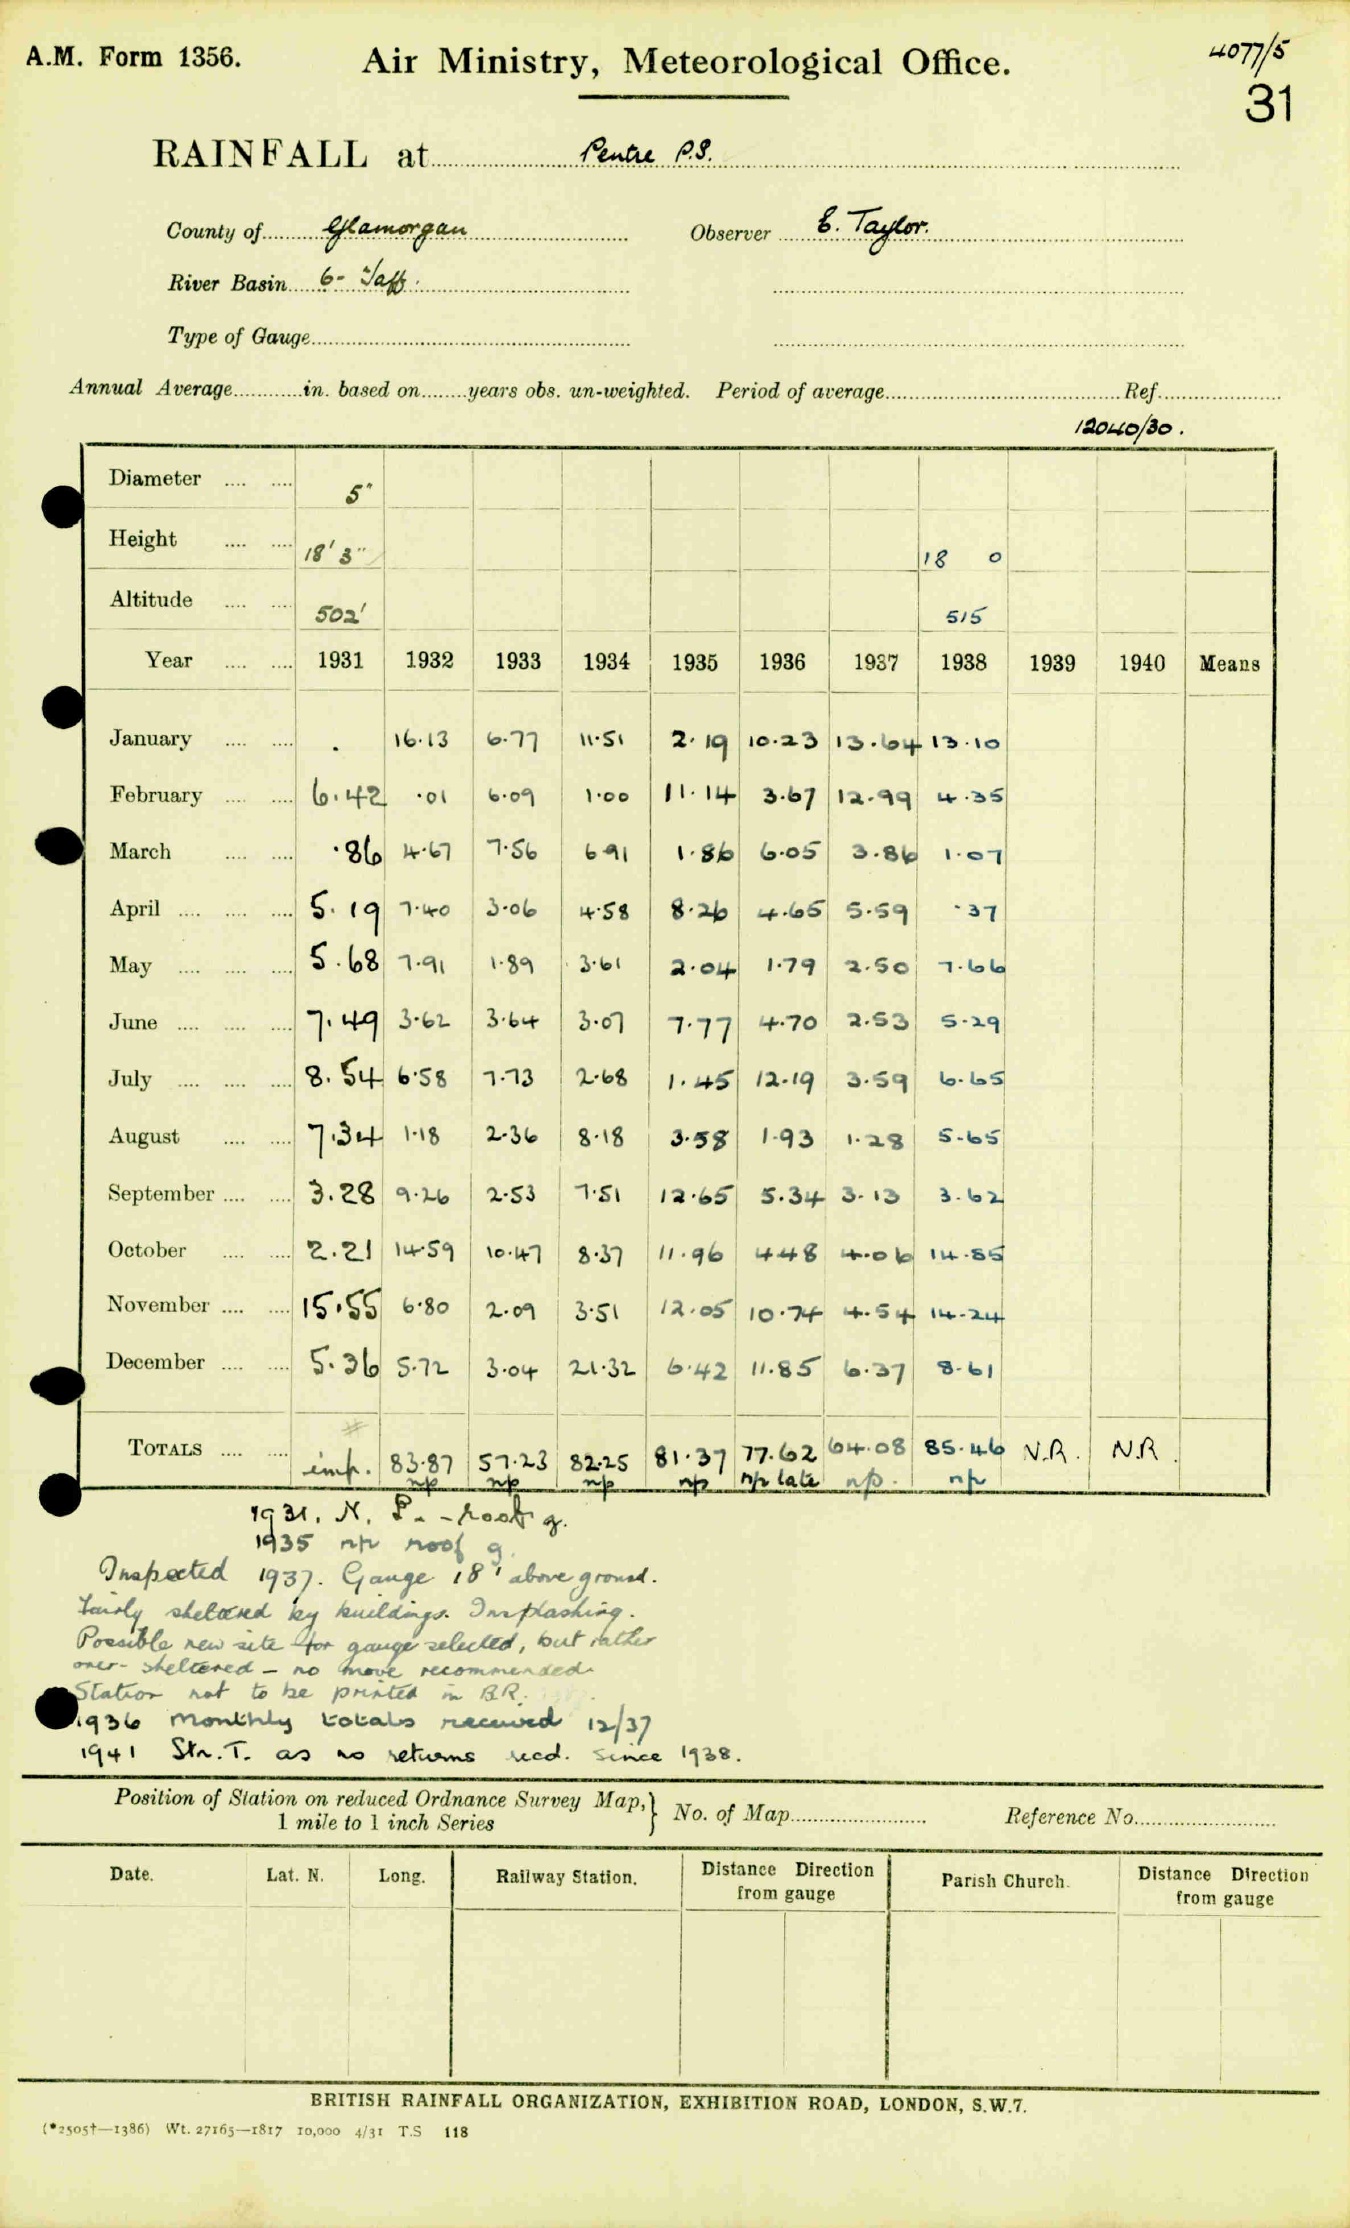 A.M. Form 1356.
Air Ministry, Meteorological Office.
4077/5
31
RAINFALL at Pentre P.S.
County of Glamorgan Observer E. Taylor.
River Basin 6- Taff.
Type of Gauge
Annual Average in. based on years obs. un-weighted. Period of average Ref.
12040/30.
Diameter 5"
Height 18' 3" 18 0
Altitude 502' 515
Year 1931 1932 1933 1934 1935 1936 1937 1938 1939 1940 Means
January . 16.13 6.77 11.51 2.19 10.23 13.64 13.10
February 6.42 .01 6.09 1.00 11.14 3.67 12.99 4.35
March .86 4.67 7.56 6.91 1.86 6.05 3.86 1.07
April 5.19 7.40 3.06 4.58 8.26 4.65 5.59 .37
May 5.68 7.91 1.89 3.61 2.04 1.79 2.50 7.66
June 7.49 3.62 3.64 3.07 7.77 4.70 2.53 5.29
July 8.54 6.58 7.73 2.68 1.45 12.19 3.59 6.65
August 7.34 1.18 2.36 8.18 3.58 1.93 1.28 5.65
September 3.28 9.26 2.53 7.51 12.65 5.34 3.13 3.62
October 2.21 14.59 10.47 8.37 11.96 4.48 4.06 14.85
November 15.55 6.80 2.09 3.51 12.05 10.74 4.54 14.24
December 5.36 5.72 3.04 21.32 6.42 11.85 6.37 8.61
#
TOTALS imp. 83.87 57.23 82.25 81.37 77.62 64.08 85.46 N.R. N.R.
np np np np np late np. np
1931. N. P. - roof g.
1935 np roof g.
Inspected 1937. Gauge 18' above ground.
Fairly sheltered by buildings. Insplashing.
Possible new site for gauge selected, but rather
over-sheltered – no move recommended.
Station not to be printed in B.R.
1936 Monthly totals received 12/37
1941 Stn. T. as no returns recd. since 1938.
Position of Station on reduced Ordnance Survey Map, } No. of Map Reference No.
1 mile to 1 inch Series
Date. Lat. N. Long. Railway Station. Distance Direction from gauge Parish Church. Distance Direction from gauge
BRITISH RAINFALL ORGANIZATION, EXHIBITION ROAD, LONDON, S.W.7.
(*2505†—1386) Wt. 27165—1817 10,000 4/31 T.S 118